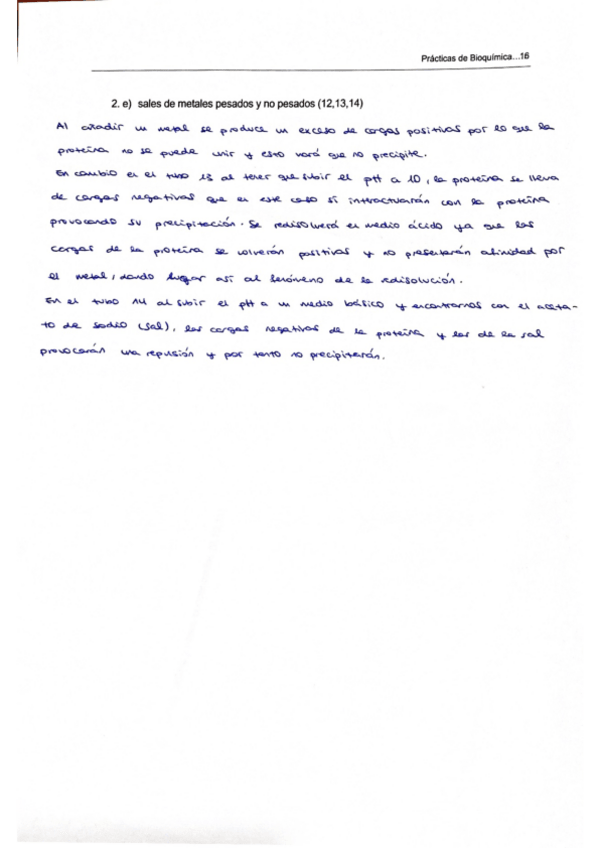 Prácticas de Bioquímica...16
2. e) sales de metales pesados y no pesados (12,13,14)
Al añadir un metal se produce un exceso de cargas positivas por lo que la
proteína no se puede unir y esto hará que no precipite.
En cambio en el tubo 13 al tener que subir el pH a 10, la proteína se lleva
de cargas negativas que en este caso si intractuarán con la proteína
provocando su precipitación. Se redisolverá en medio ácido ya que las
cargas de la proteína se volverán positivas y no presentarán afinidad por
el metal, dando lugar así al fenómeno de la redisolución.
En el tubo 14 al subir el pH a un medio básico y encontrarnos con el aceta-
to de sodio (sal), las cargas negativas de la proteína y las de la sal
provocarán una repulsión y por tanto no precipitarán.